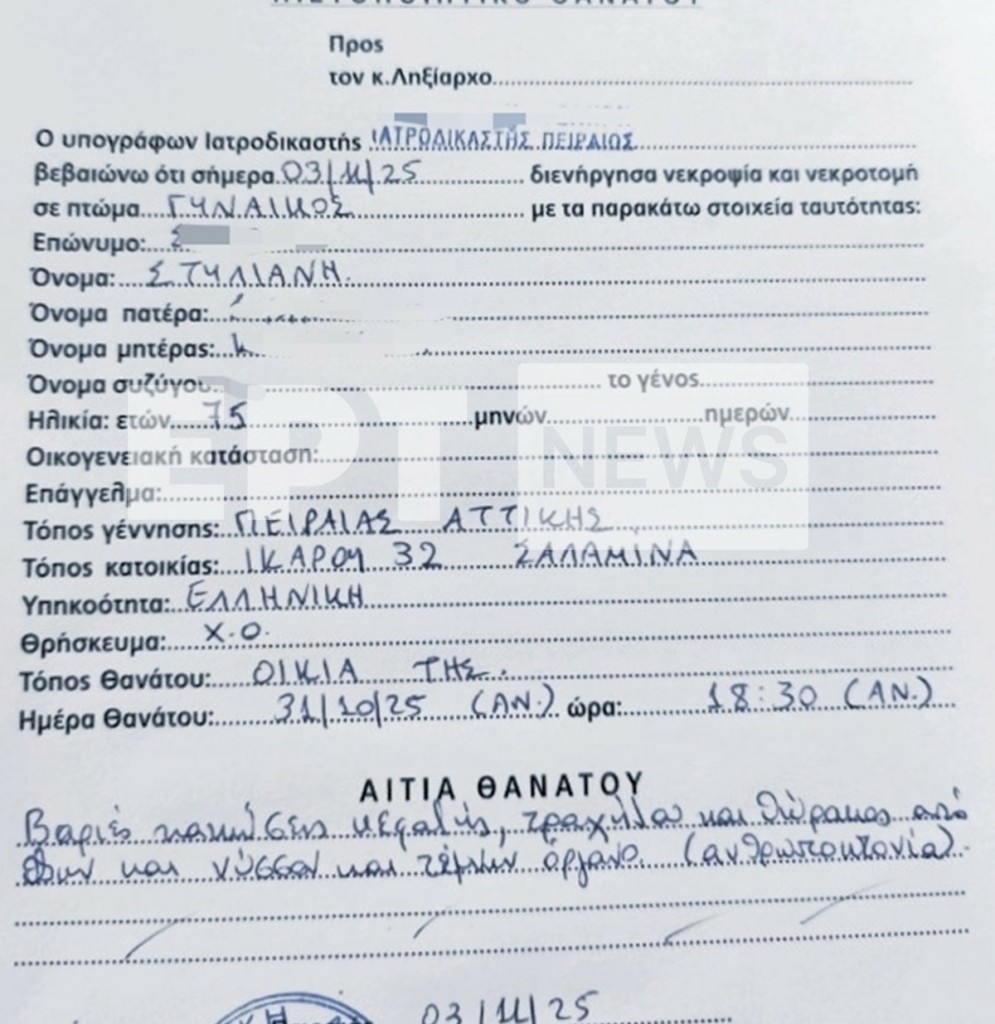 ΠΙΣΤΟΠΟΙΗΤΙΚΟ ΘΑΝΑΤΟΥ
Προς
τον κ.Ληξίαρχο
Ο υπογράφων Ιατροδικαστής ΙΑΤΡΟΔΙΚΑΣΤΗΣ ΠΕΙΡΑΙΩΣ
βεβαιώνω ότι σήμερα 03/11/25 διενήργησα νεκροψία και νεκροτομή
σε πτώμα ΓΥΝΑΙΚΟΣ με τα παρακάτω στοιχεία ταυτότητας:
Επώνυμο: Σ
Όνομα: ΣΤΥΛΙΑΝΗ
Όνομα πατέρα:
Όνομα μητέρας:
Όνομα συζύγου το γένος
Ηλικία: ετών 75 μηνών ημερών
Οικογενειακή κατάσταση:
Επάγγελμα:
Τόπος γέννησης: ΠΕΙΡΑΙΑΣ ΑΤΤΙΚΗΣ
Τόπος κατοικίας: ΙΚΑΡΟΥ 32 ΣΑΛΑΜΙΝΑ
Υπηκοότητα: ΕΛΛΗΝΙΚΗ
Θρήσκευμα: Χ.Ο.
Τόπος Θανάτου: ΟΙΚΙΑ ΤΗΣ.
Ημέρα Θανάτου: 31/10/25 (ΑΝ.) ώρα: 18:30 (ΑΝ.)
ΑΙΤΙΑ ΘΑΝΑΤΟΥ
Βαριές κακώσεις κεφαλής, τραχήλου και θώρακος από
θλων και νύσσον και τέμνων όργανο. (ανθρωποκτονία).
03/11/25
ΕΡΤ NEWS